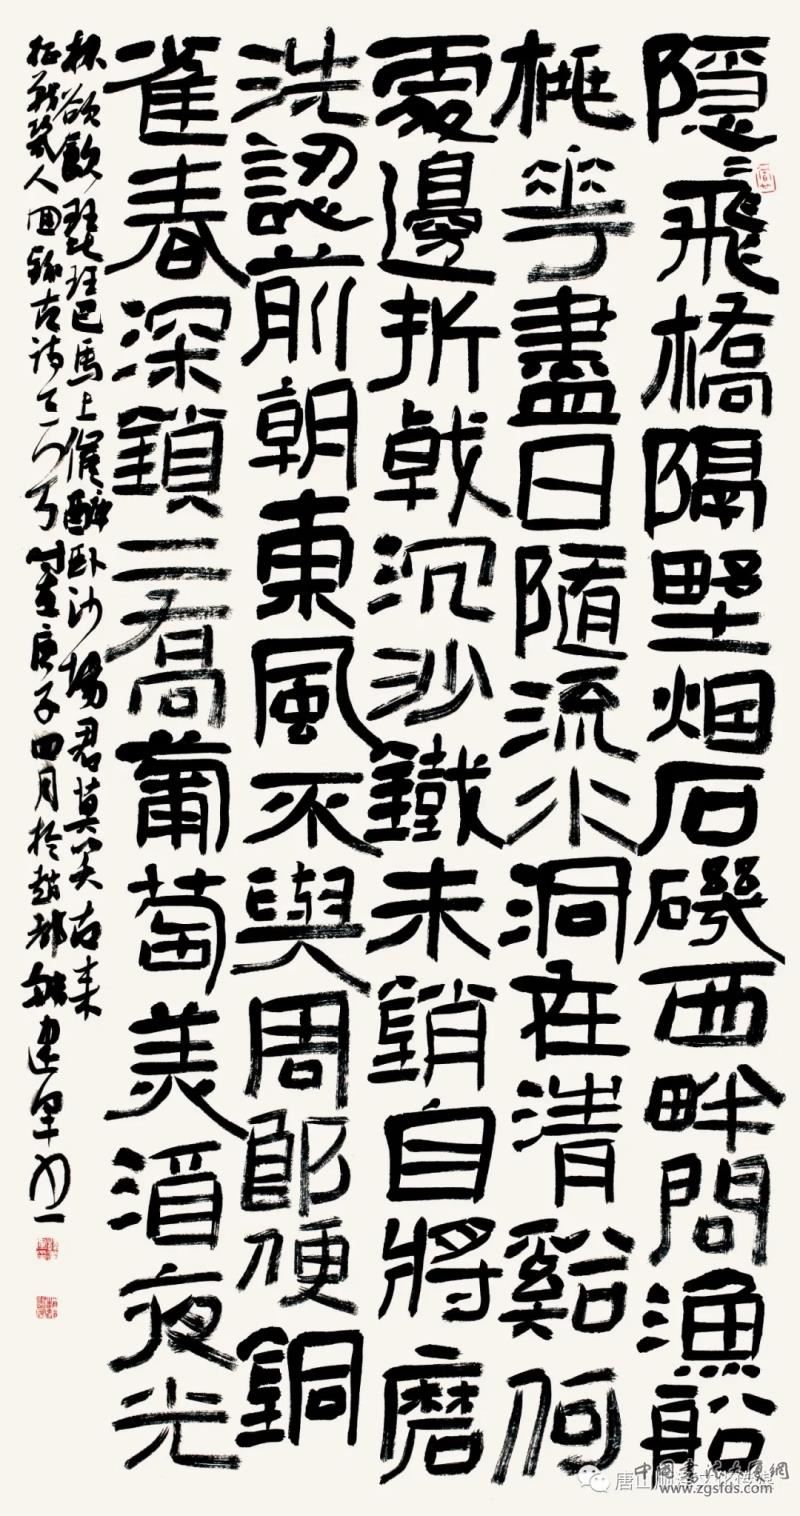 隱〻飛橋隔野烟石磯西畔問漁船
桃花盡日隨流水洞在清谿何
處邊折戟沉沙鐵未銷自將磨
洗認前朝東風不與周郎便銅
雀春深鎖二喬葡萄美酒夜光
杯欲飲琵琶馬上催醉卧沙場君莫笑古來
征戰幾人回錄古詩三首庚子四月於趙都建軍
中國書法大厦網
www.zgsfds.com